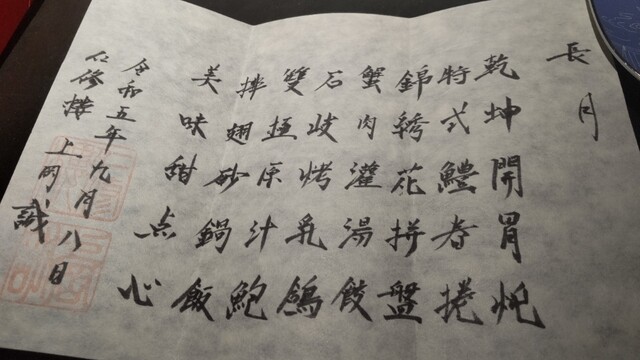 長月
乾坤開胃
特式鱧春捲
錦花拼盤
蟹肉灌湯餃
石岐烤乳鴿
雙原汁鮑
排翅砂鍋飯
美味甜点心
令和五年九月八日
仁修樓 上岡誠